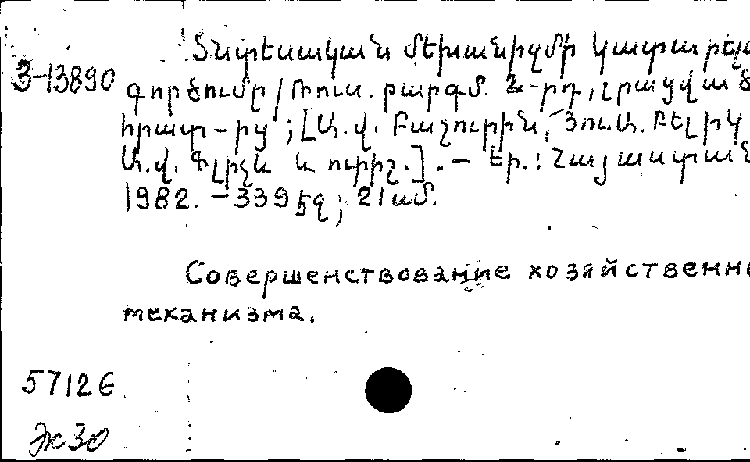 Տնտեսական մեխանիզմի կատարել
З-13890
գործումը / Ռուս. բարգմ. 2-րդ, լրացված
հրատ-ից ; [Ա. վ. Բաչուրին, Յու. Ա. Բելիկ
Ա. վ. և ուրիշ.]. – Եր.: Հայաստան
1982. – 339 էջ ; 21 սմ.
Совершенствование хозяйственно
механизма.
57126
Эк30